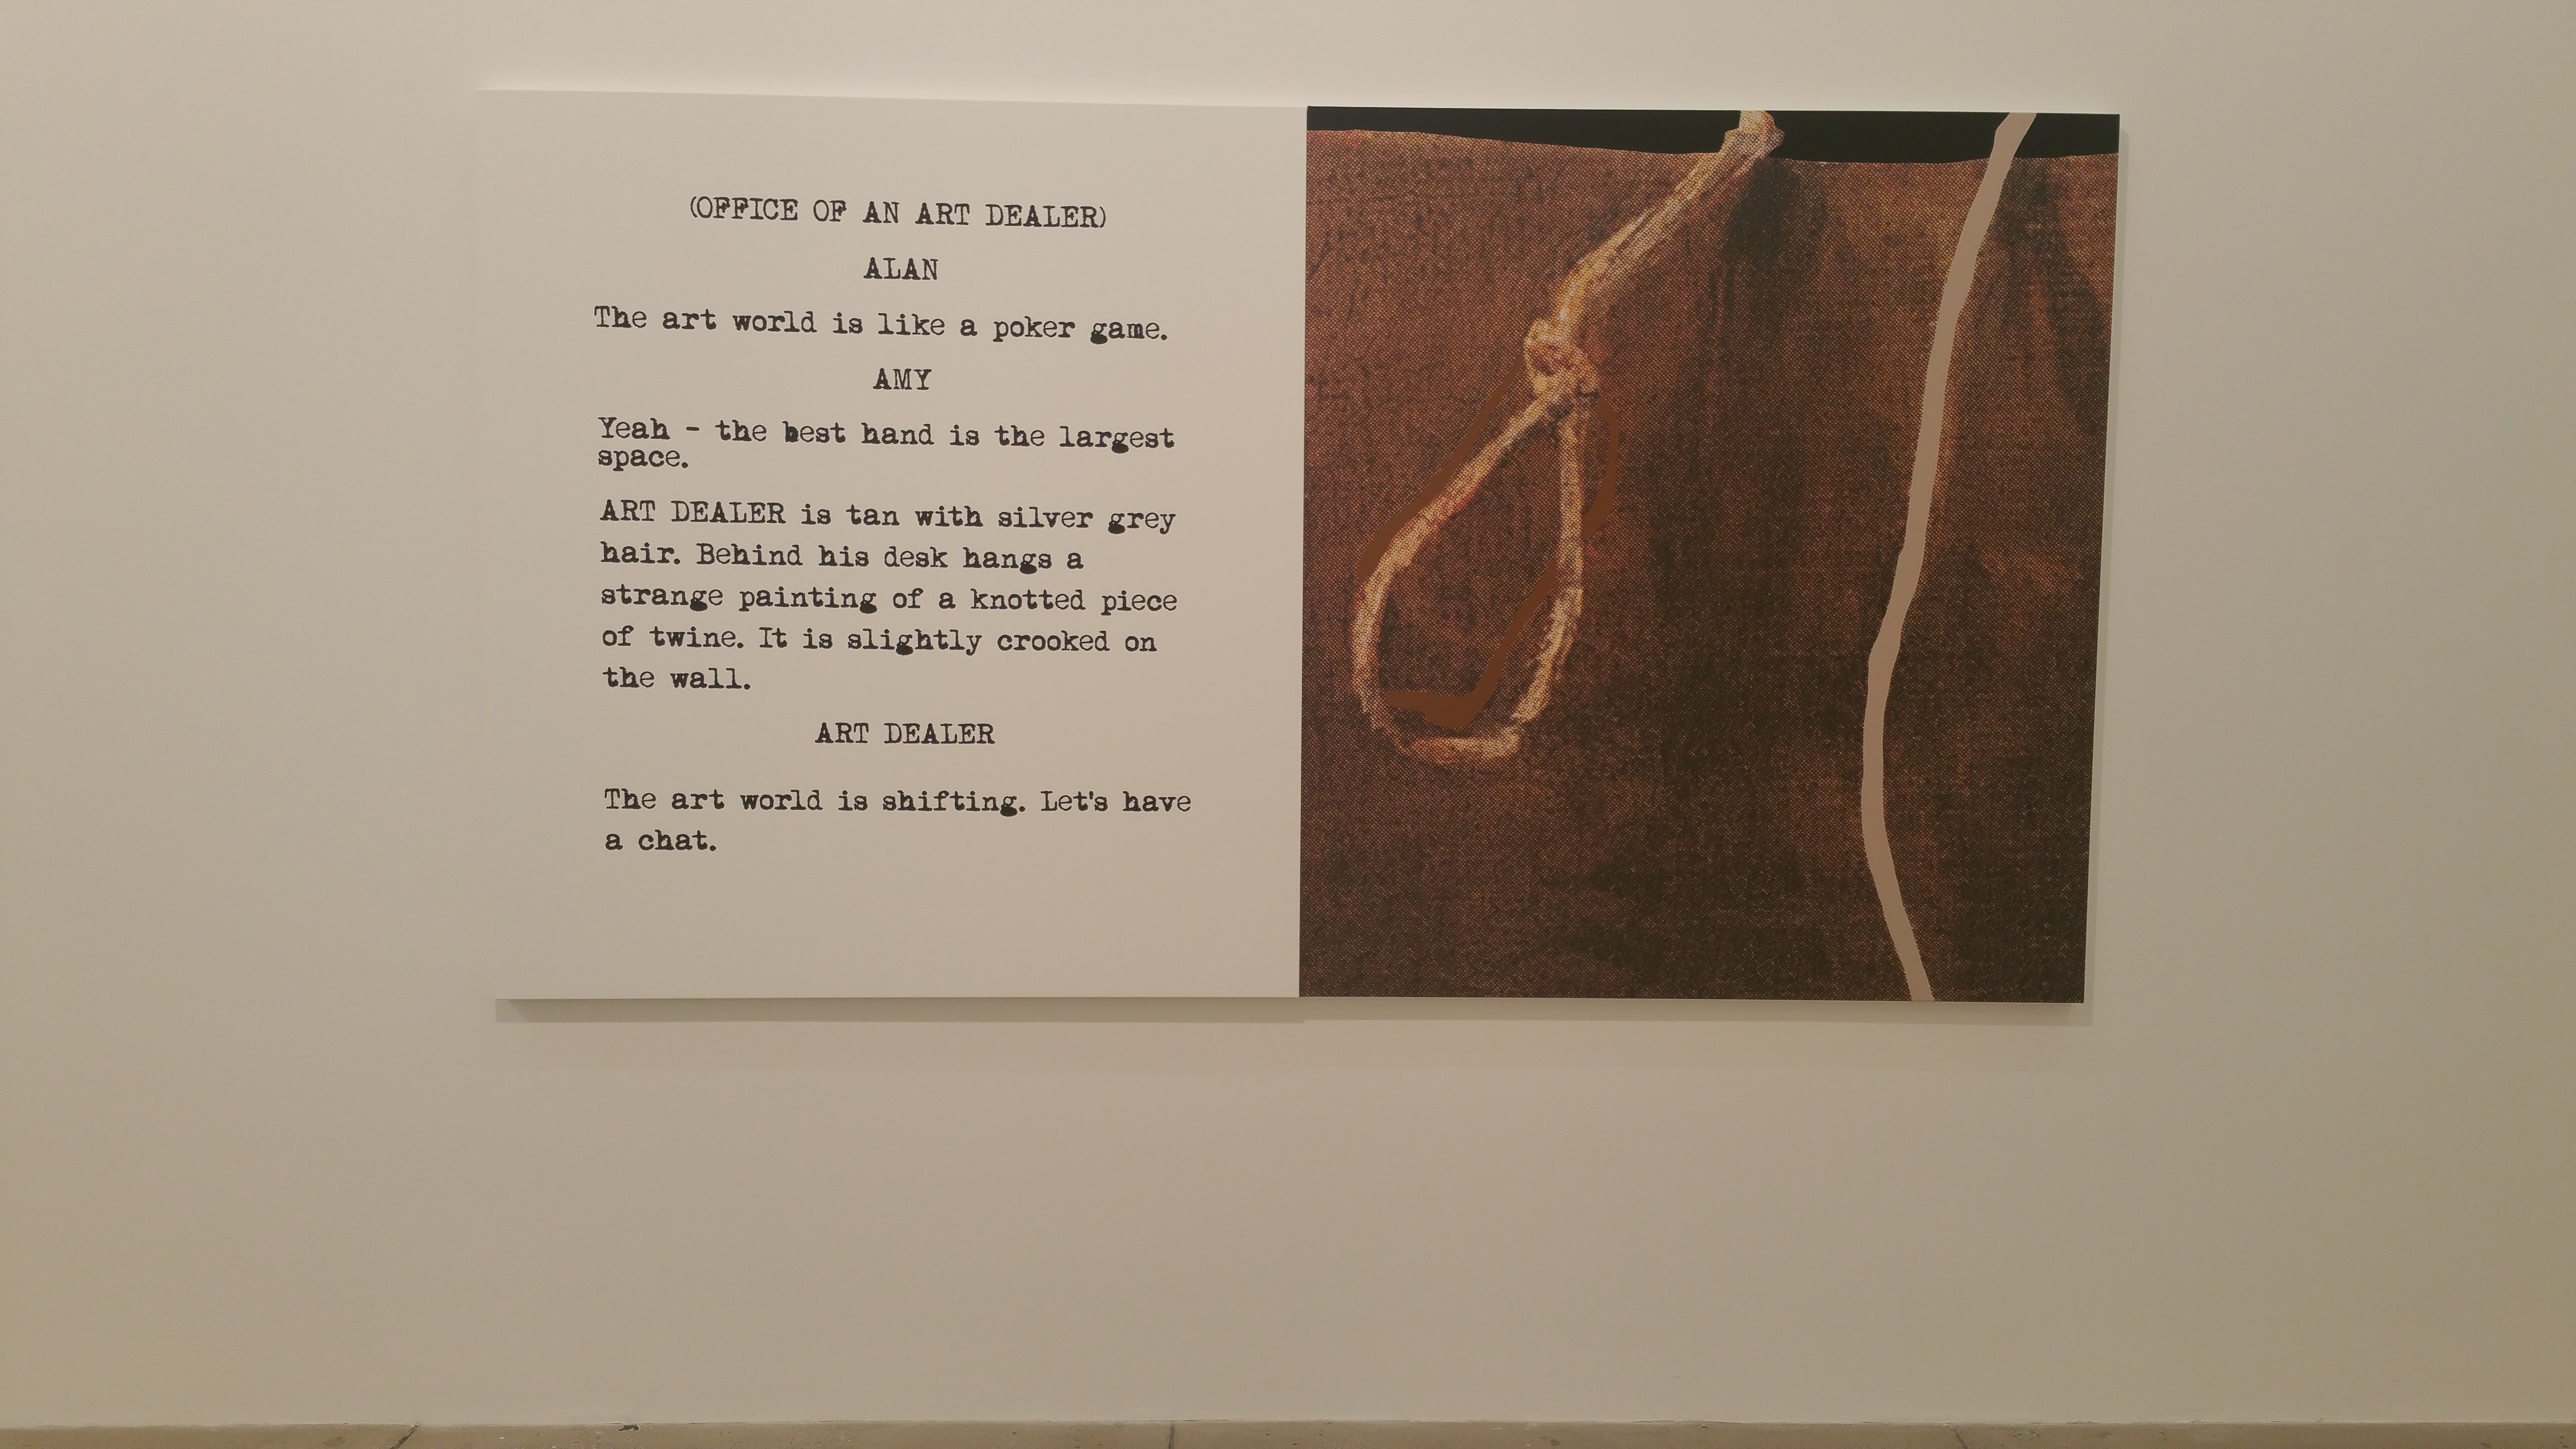 (OFFICE OF AN ART DEALER)
ALAN
The art world is like a poker game.
AMY
Yeah - the best hand is the largest
space.
ART DEALER is tan with silver grey
hair. Behind his desk hangs a
strange painting of a knotted piece
of twine. It is slightly crooked on
the wall.
ART DEALER
The art world is shifting. Let's have
a chat.